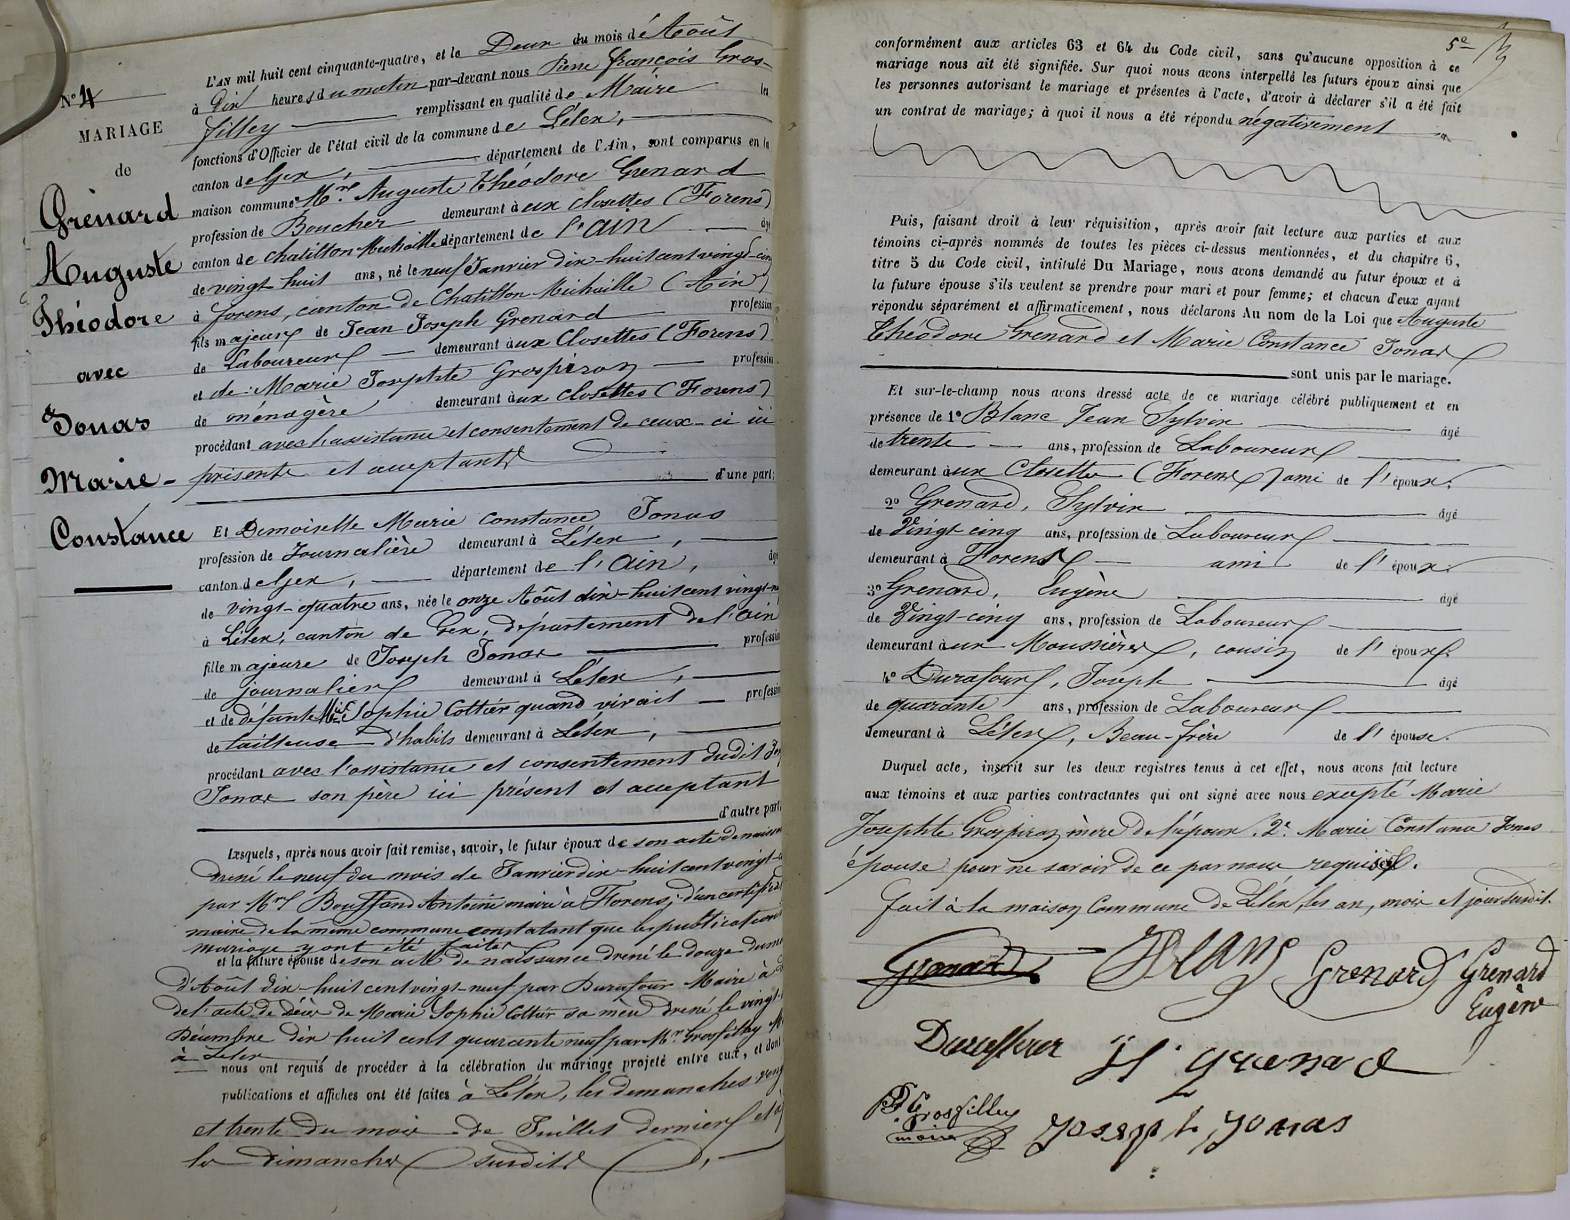 N° 4
MARIAGE
de
Grènard
Auguste
Théodore
avec
Jonas
Marie-
Constance
L'AN mil huit cent cinquante-quatre, et le Deux du mois d'Août
à Dix heures du matin par-devant nous Pierre françois Gros-
filley remplissant en qualité de Maire les
fonctions d'Officier de l'état civil de la commune de Lélex,
canton de Gex, département de l'Ain, sont comparus en la
maison commune Mr. Auguste Théodore Grenard
profession de Boucher demeurant à aux Closettes (Forens)
canton de Chatillon Michaille département de l'ain âgé
de vingt huit ans, né le neuf Janvier dix-huit cent vingt-cinq
à forens, canton de Chatillon Michaille (Ain)
fils majeur de Jean Joseph Grenard profession
de Laboureur demeurant à aux Closettes (Forens)
et de Marie Josephte Grospiron profession
de ménagère demeurant à aux Closettes (Forens)
procédant avec l'assistance et consentement de ceux-ci ici
présents et acceptants
d'une part;
Et Demoiselle Marie Constance Jonas
profession de Journalière demeurant à Lélex,
canton de Gex, département de l'Ain, âgée
de vingt-quatre ans, née le onze Août dix-huit cent vingt-
à Lélex, canton de Gex, département de l'ain
fille majeure de Joseph Jonas profession
de journalier demeurant à Lélex,
et de défunte Marie Sophie Cottier quand vivait profession
de tailleuse d'habits demeurant à Lélex,
procédant avec l'assistance et consentement dudit
Jonas son père ici présent et acceptant
d'autre part;
Lesquels, après nous avoir fait remise, savoir, le futur époux de son acte de naissance
dréné le neuf du mois de Janvier dix-huit cent vingt-
par Mr. Bouffand Antoine maire à Forens; d'un certificat
maire de la même commune constatant que les publications
mariage y ont été faites
et la future épouse de son acte de naissance dréné le douze du mois
d'Août dix-huit cent vingt-neuf par Durafour Maire à
de l'acte de décès de Marie Sophie Cottier sa mère dréné le vingt-
Décembre dix huit cent quarante neuf par Mr. Grosfilley
à Lélex
nous ont requis de procéder à la célébration du mariage projeté entre eux, et dont
publications et affiches ont été faites à Lélex, les demanches vingt
et trente du mois de Juillet dernier et à
les dimanches susdits
5e
conformément aux articles 63 et 64 du Code civil, sans qu'aucune opposition à ce
mariage nous ait été signifiée. Sur quoi nous avons interpellé les futurs époux ainsi que
les personnes autorisant le mariage et présentes à l'acte, d'avoir à déclarer s'il a été fait
un contrat de mariage; à quoi il nous a été répondu négativement
Puis, faisant droit à leur réquisition, après avoir fait lecture aux parties et aux
témoins ci-après nommés de toutes les pièces ci-dessus mentionnées, et du chapitre 6,
titre 5 du Code civil, intitulé Du Mariage, nous avons demandé au futur époux et à
la future épouse s'ils veulent se prendre pour mari et pour femme; et chacun d'eux ayant
répondu séparément et affirmativement, nous déclarons Au nom de la Loi que Auguste
Théodore Grenard et Marie Constance Jonas
sont unis par le mariage.
Et sur-le-champ nous avons dressé acte de ce mariage célébré publiquement et en
présence de 1° Blanc Jean Sylvin âgé
de trente ans, profession de Laboureur
demeurant à aux Closette (Forens) ami de l'époux.
2° Grenard, Sylvin âgé
de Vingt-cinq ans, profession de Laboureur
demeurant à Forens ami de l'époux.
3° Grenard, Eugène âgé
de Vingt-cinq ans, profession de Laboureur
demeurant à aux Moussières, cousin de l'époux.
4° Durafour, Joseph âgé
de quarante ans, profession de Laboureur
demeurant à Lélex, Beau-frère de l'épouse.
Duquel acte, inscrit sur les deux registres tenus à cet effet, nous avons fait lecture
aux témoins et aux parties contractantes qui ont signé avec nous excepté Marie
Josephte Grospiron mère de l'époux. 2° Marie Constance Jonas
épouse pour ne savoir de ce par nous requises.
fait à la maison Commune de Lélex, les an, mois et jour susdit.
Grenard
Blanc
Grenard
Grenard
Eugène
Duraffour
JJ Grenard
P. f. Grosfilley
maire
Joseph Jonas